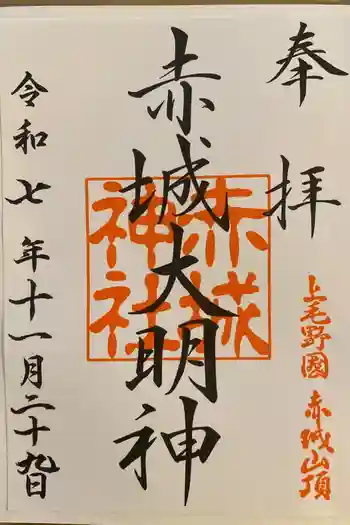 奉拝
上毛野國 赤城山頂
赤城大明神
赤城神社
令和七年十一月二十九日